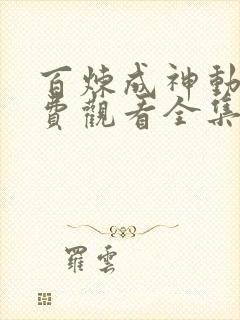 百煉成神動
費觀看全集
羅雲